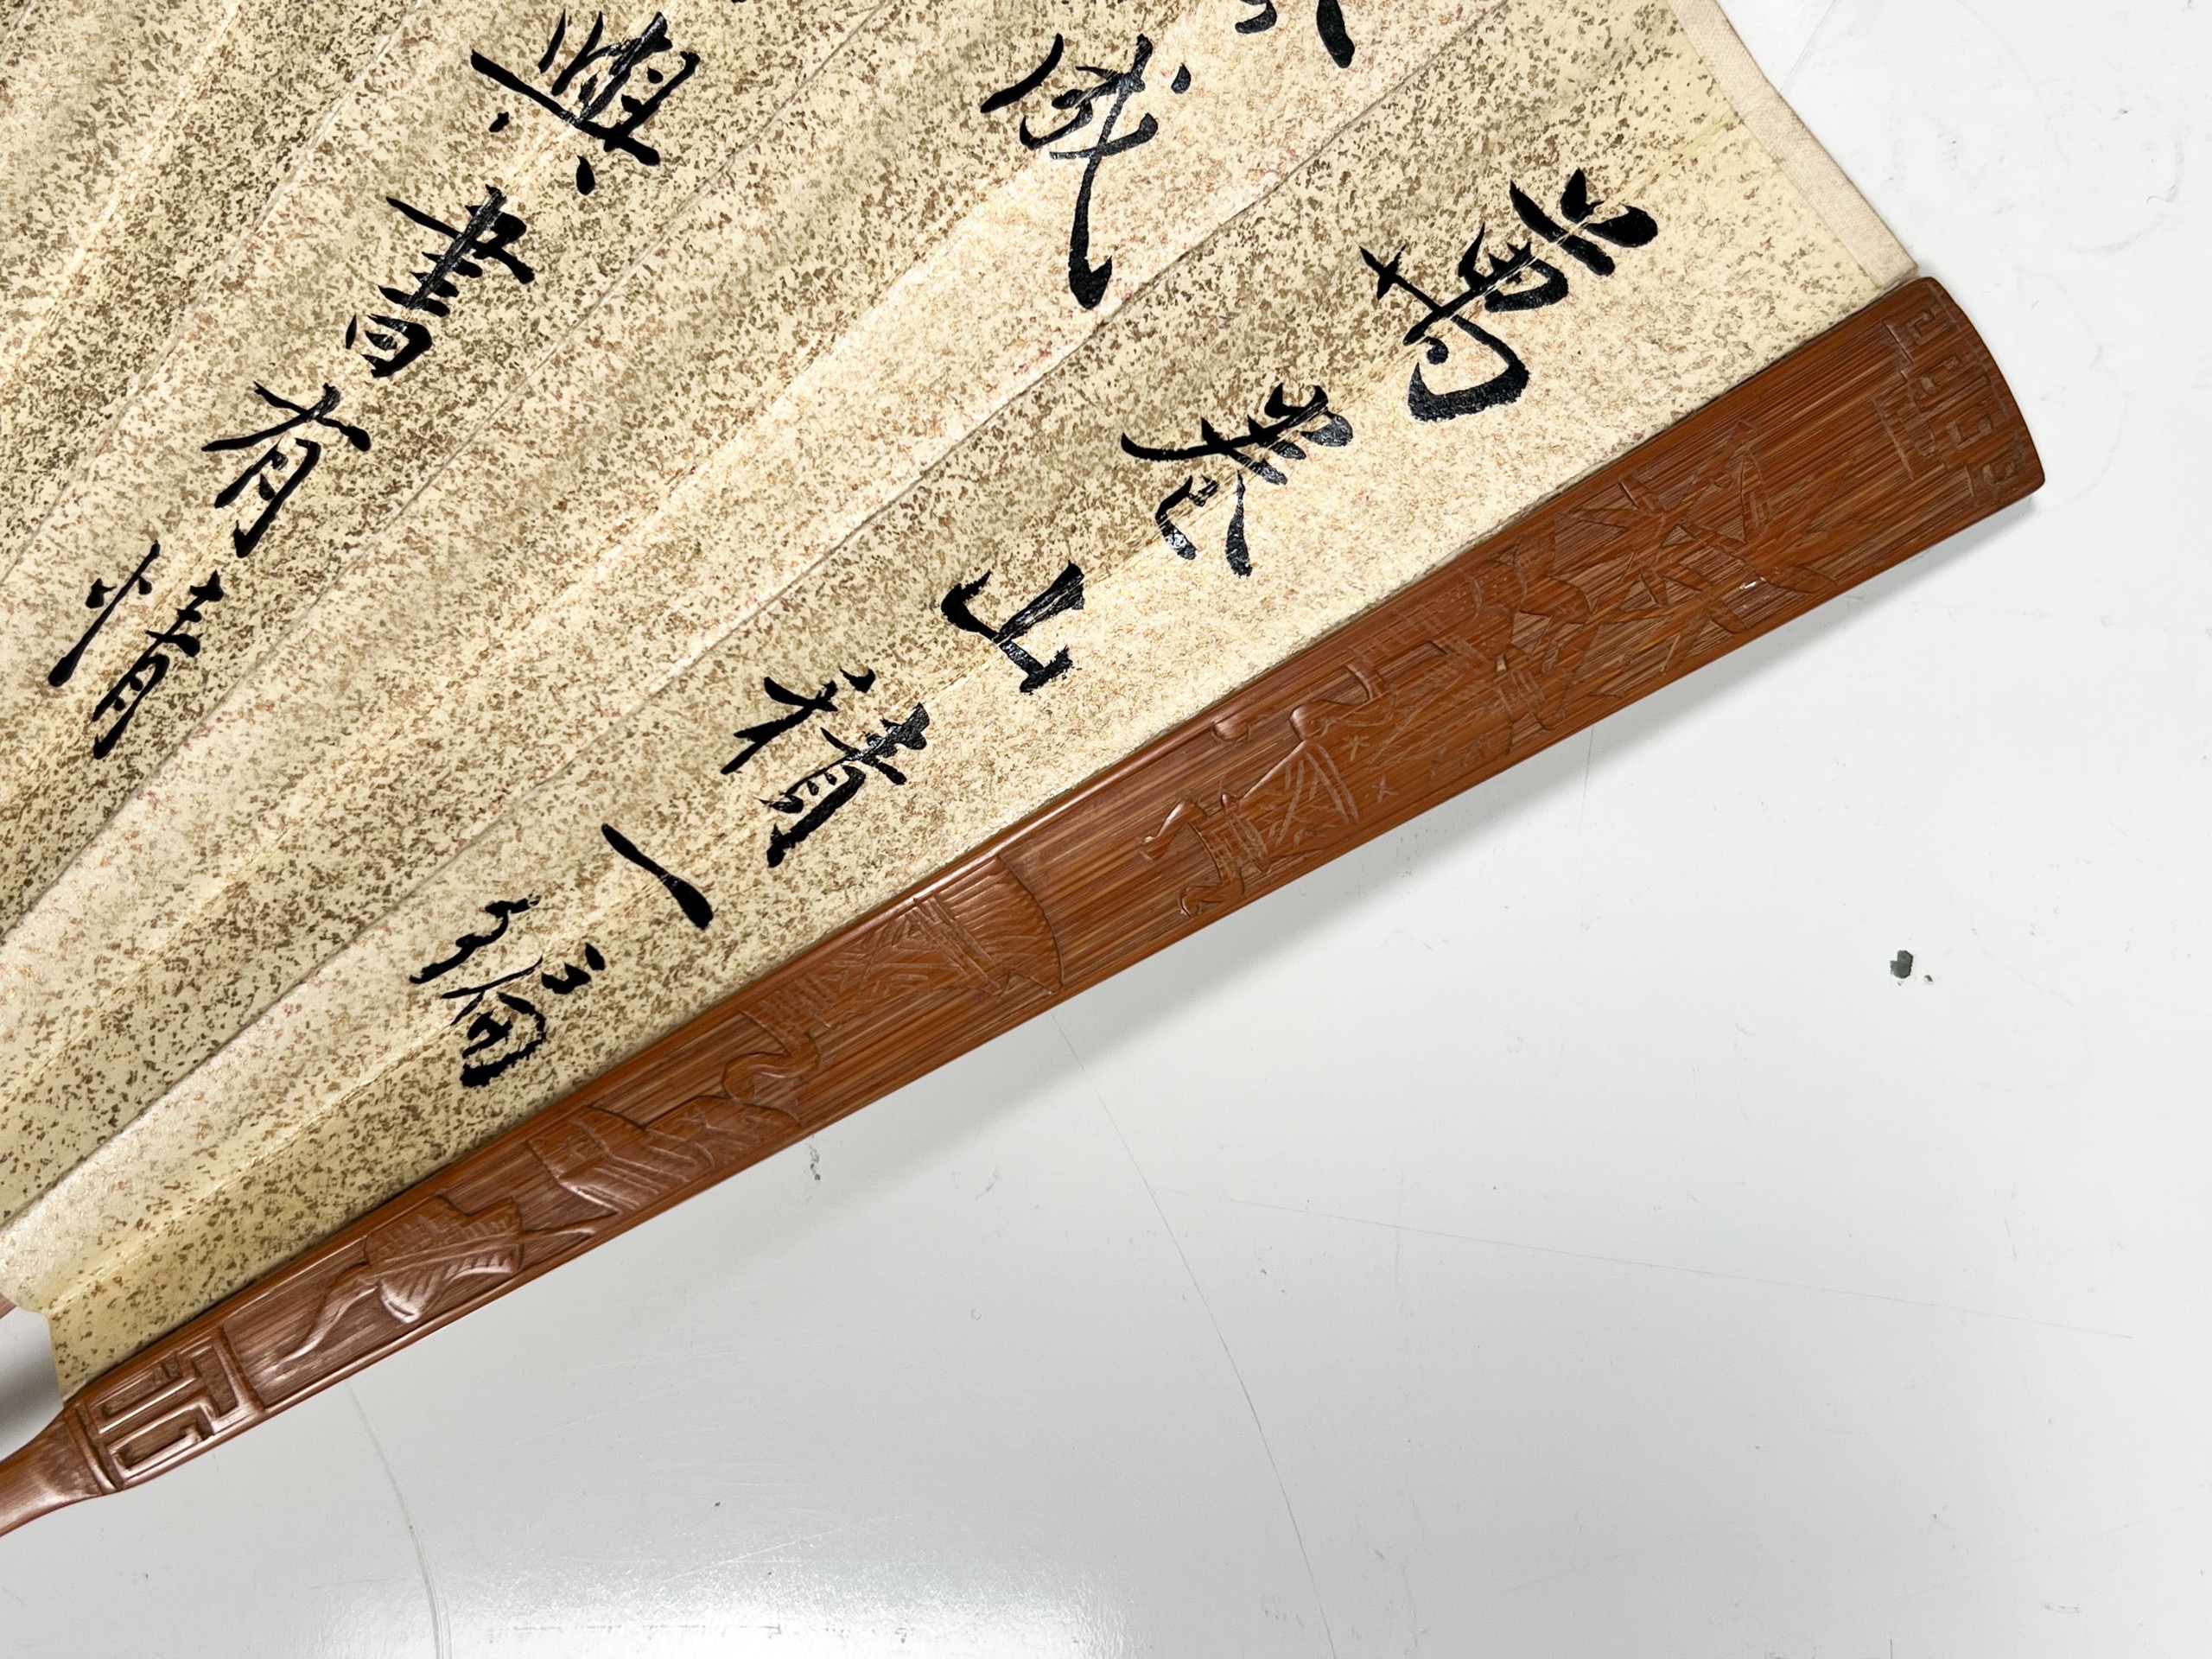 萬卷山積一篇
成
與書有情